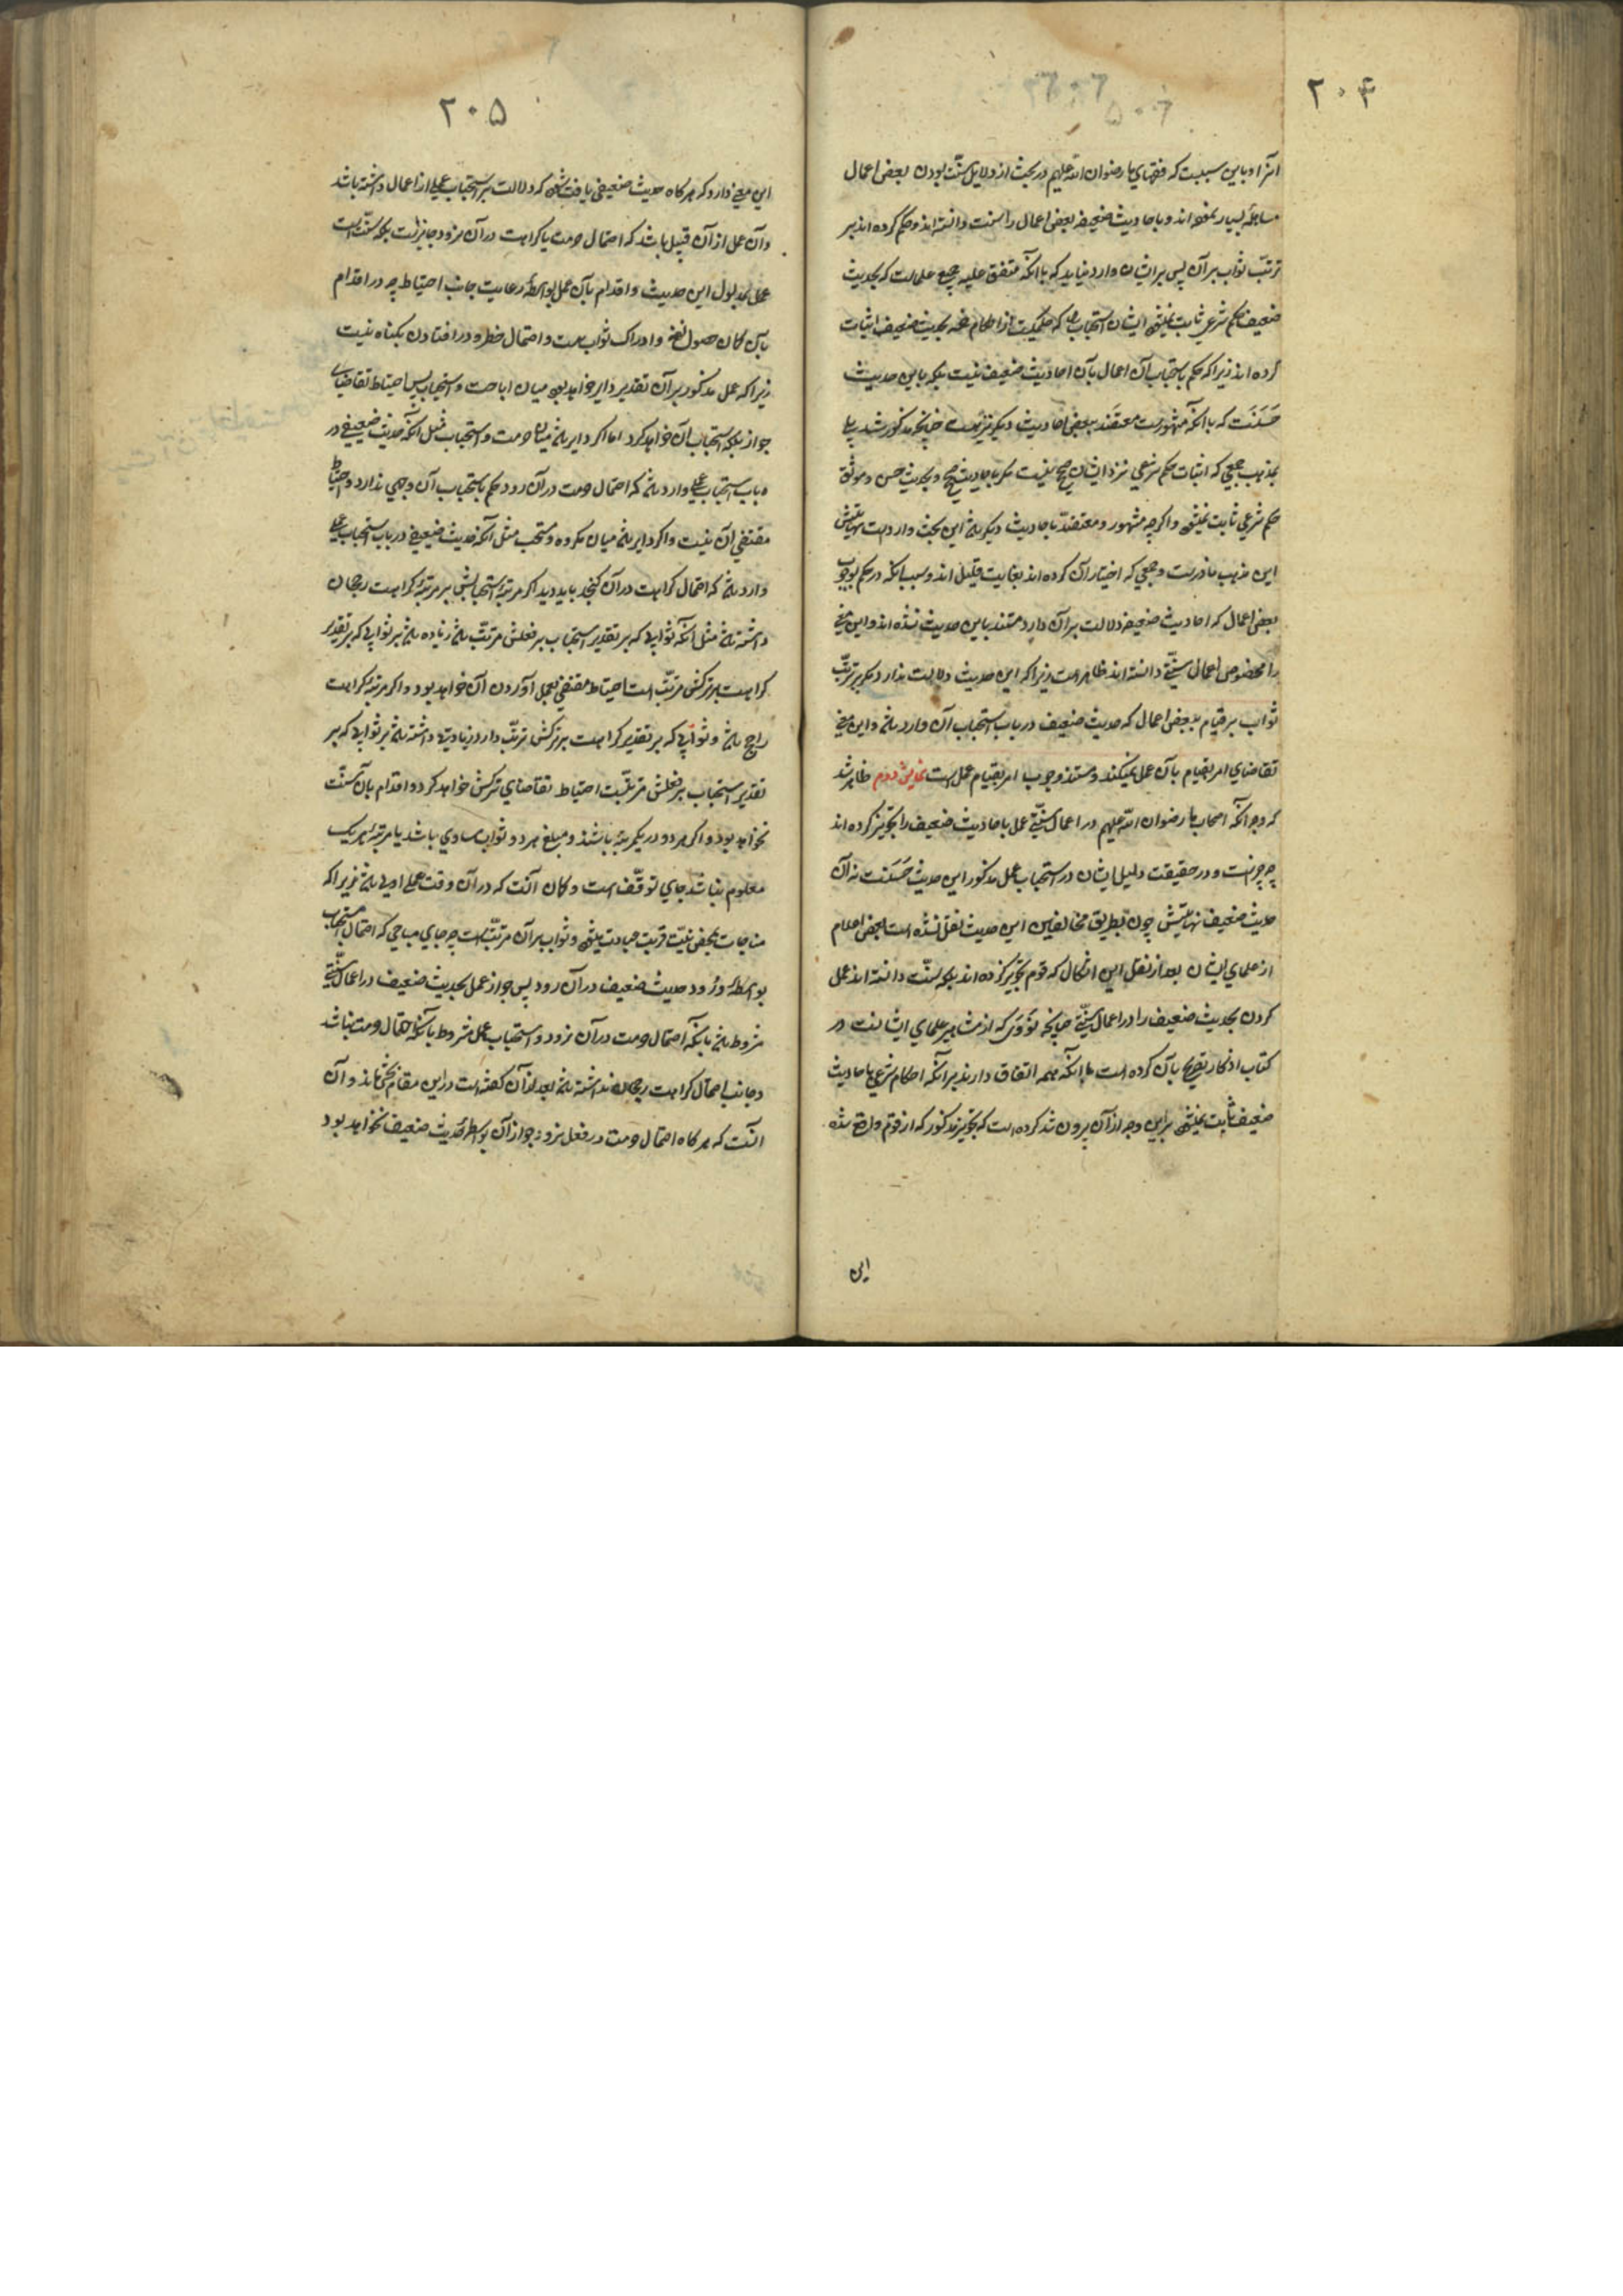 ۲۰۴
آنرا و باین سببست که فقهای ما رضوان الله علیهم در بحث از دلایل سنّت بودن بعضی اعمال
مساهله بسیار نموده اند و باحادیث ضعیفه بعضی اعمال را سنت دانسته اند و حکم کرده اند بر
ترتب ثواب بر آن پس بر ایشان وارد نیاید که با آنکه متفق علیه جمیع علماست که بحدیث
ضعیف حکم شرعی ثابت نمیشود ایشان استحباب را که حکمیست از احکام خمسه بحدیث ضعیف اثبات
کرده اند زیرا که حکم باستحباب آن اعمال بآن احادیث ضعیف نیست بلکه باین حدیث
حَسَنست که با آنکه مشهورست معتضَد ببعضی احادیث دیگر نیز هست چنانچه مذکور شد بلی
بمذهب جمعی که اثبات حکم شرعی نزد ایشان صحیح نیست مگر باحادیث صحیح و بحدیث حسن و موثق
حکم شرعی ثابت نمیشود و اگرچه مشهور و معتضد باحادیث دیگر باشد این بحث واردست نهایتش
این مذهب نادرست و جمعی که اختیار آن کرده اند بغایت قلیل اند و سبب آنکه در حکم بوجوب
بعضی اعمال که احادیث ضعیفه دلالت بر آن دارد مستند باین حدیث نشده اند و این معنی
را مخصوص اعمال سنّتی دانسته اند ظاهر است زیرا که این حدیث دلالت ندارد مگر بر ترتّب
ثواب بر قیام ببعضی اعمال که حدیث ضعیف در باب استحباب آن وارد باشد و این معنی
تقاضای امر بقیام بآن عمل نمیکند و مستند وجوب امر بقیام عمل است نمایش دوم ظاهر شد
که وجه آنکه اصحاب ما رضوان الله علیهم در اعمال سنّتی عمل باحادیث ضعیف را تجویز کرده اند
چه چیزست و در حقیقت دلیل ایشان در استحباب عمل مذکور این حدیث حَسَنست نه آن
حدیث ضعیف نهایتش چون بطریق مخالفین این حدیث نقل نشده است بعضی اعلام
از علمای ایشان بعد از نقل این اشکال که قوم تجویز کرده اند بلکه سنّت دانسته اند عمل
کردن بحدیث ضعیف را در اعمال سنّتی چنانچه نَوَوی که از مشاهیر علمای ایشانست در
کتاب اذکار تصریح بآن کرده است با آنکه همه اتفاق دارند بر آنکه احکام شرعی باحادیث
ضعیف ثابت نمیشود براین وجه از آن بیرون شد کرده است که تجویز مذکور که از قوم واقع شده
این
۲۰۵
این معنی دارد که هر گاه حدیث ضعیفی یافت شود که دلالت بر استحباب عملی از اعمال داشته باشد
و آن عمل از آن قبیل باشد که احتمال حرمت یا کراهت در آن نرود جایزست بلکه سنّت است
عمل بمدلول این حدیث و اقدام بآن عمل بواسطه رعایت جانب احتیاط چه در اقدام
بآن گمان حصول نفع و ادراک ثواب هست و احتمال خطر و در افتادن بگناه نیست
زیرا که عمل مذکور بر آن تقدیر دایر خواهد بود میان اباحت و استحباب پس احتیاط تقاضای
جواز بلکه استحباب آن خواهد کرد اما اگر دایر باشد میان حرمت و استحباب مثل آنکه حدیث ضعیفی در
باب استحباب عملی وارد باشد که احتمال حرمت در آن رود حکم باستحباب آن وجهی ندارد و احتیاط
مقتضی آن نیست و اگر دایر باشد میان مکروه و مستحب مثل آنکه حدیث ضعیفی در باب استحباب عملی
وارد باشد که احتمال کراهت در آن گنجد باید دید اگر مرتبه استحبابش بر مرتبه کراهت رجحان
داشته باشد مثل آنکه ثوابی که بر تقدیر استحباب بر فعلش مرتّب باشد زیاده باشد بر ثوابی که بر تقدیر
کراهت بر ترکش مرتّب است احتیاط مقتضی بعمل آوردن آن خواهد بود و اگر مرتبه کراهت
راجح باشد و ثوابی که بر تقدیر کراهت بر ترکش ترتّب دارد زیادتی داشته باشد بر ثوابی که بر
تقدیر استحباب بر فعلش مرتّبست احتیاط تقاضای ترکش خواهد کرد و اقدام بآن سنّت
نخواهد بود و اگر هر دو در یکمرتبه باشند و مبلغ هر دو ثواب مساوی باشد یا مرتبه هر یک
معلوم نباشد جای توقّف است و گمان آنست که در آن وقت عمل اولی باشد زیرا که
مباحات بمحض نیّت قربت عبادت میشود و ثواب بر آن مرتّب است چه جای مباحی که احتمال استحباب
بواسطه ورود حدیث ضعیف در آن رود پس جواز عمل بحدیث ضعیف در اعمال سنّتی
مشروط باشد بآنکه احتمال حرمت در آن نرود و استحباب عمل مشروط بآنکه احتمال حرمت نباشد
و جانب احتمال کراهت رجحان نداشته باشد بعد از آن گفته است در این مقام بحثی ماند و آن
آنست که هر گاه احتمال حرمت در فعل نرود جواز آن بواسطه حدیث ضعیف نخواهد بود